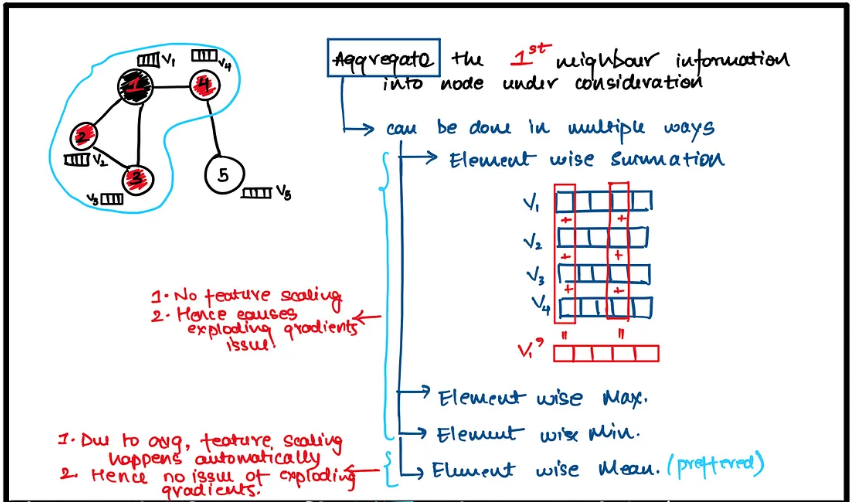 V1
V4
1
4
2
V2
3
V3
5
V5
Aggregate the 1st neighbour information
into node under consideration
can be done in multiple ways
Element wise Summation
V1
+ +
V2
+ +
V3
+ +
V4
" "
V1'
1. No feature scaling
2. Hence causes
exploding gradients
issue!
Element wise Max.
Element wise Min.
Element wise Mean. (preffered)
1. Due to avg, feature scaling
happens automatically
2. Hence no issue of exploding
gradients.